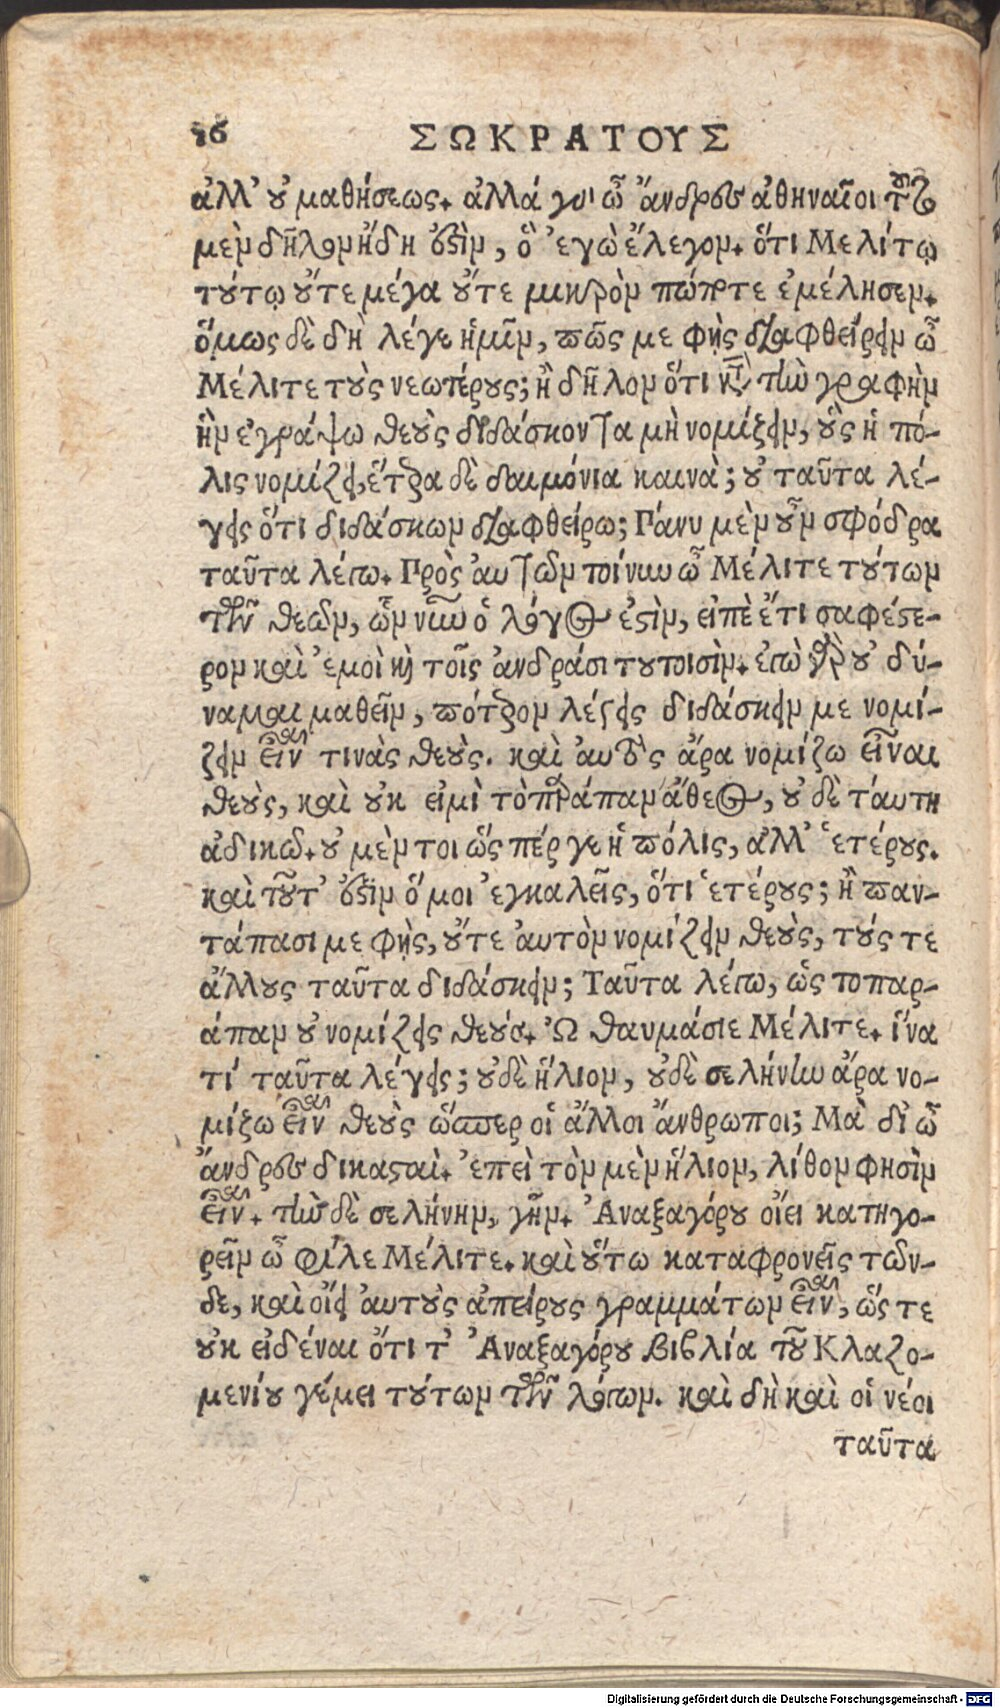 16 ΣΩΚΡΑΤΟΥΣ
ἀλλ' οὐ μαθήσεως. ἀλλά γὰρ ὦ ἄνδρες ἀθηναῖοι τοῦτο
μὲν δῆλον ἤδη ἐστὶν, ὃ ἐγὼ ἔλεγον. ὅτι Μελίτῳ
τούτῳ οὔτε μέγα οὔτε μικρὸν πώποτε ἐμέλησεν.
ὅμως δὲ δὴ λέγε ἡμῖν, πῶς με φῂς διαφθείρειν ὦ
Μέλιτε τοὺς νεωτέρους; ἢ δῆλον ὅτι κατὰ τὴν γραφὴν
ἣν ἐγράψω θεοὺς διδάσκοντα μὴ νομίζειν, οὓς ἡ πό-
λις νομίζει, ἕτερα δὲ δαιμόνια καινὰ; οὐ ταῦτα λέ-
γεις ὅτι διδάσκων διαφθείρω; Πάνυ μὲν οὖν σφόδρα
ταῦτα λέγω. Πρὸς αὐτῶν τοίνυν ὦ Μέλιτε τούτων
τῶν θεῶν, ὧν νῦν ὁ λόγος ἐστὶν, εἰπὲ ἔτι σαφέστε-
ρον καὶ ἐμοὶ καὶ τοῖς ἀνδράσι τουτοισὶν. ἐγὼ γὰρ οὐ δύ-
ναμαι μαθεῖν, πότερον λέγεις διδάσκειν με νομί-
ζειν εἶναι τινὰς θεοὺς. καὶ αὐτὸς ἄρα νομίζω εἶναι
θεοὺς, καὶ οὐκ εἰμὶ τὸ παράπαν ἄθεος, οὐ δὲ ταύτη
ἀδικῶ. οὐ μὲν τοι ὥς πέρ γε ἡ πόλις, ἀλλ' ἑτέρους.
καὶ τοῦτ' ἐστὶν ὅ μοι ἐγκαλεῖς, ὅτι ἑτέρους; ἢ παν-
τάπασι με φῂς, οὔτε αὐτὸν νομίζειν θεοὺς, τούς τε
ἄλλους ταῦτα διδάσκειν; Ταῦτα λέγω, ὡς τοπαρ-
άπαν οὐ νομίζεις θεούς. Ὦ θαυμάσιε Μέλιτε. ἵνα
τί ταῦτα λέγεις; οὐδὲ ἥλιον, οὐδὲ σελήνην ἄρα νο-
μίζω εἶναι θεοὺς ὥσπερ οἱ ἄλλοι ἄνθρωποι; Μὰ δί' ὦ
ἄνδρες δικασταὶ. ἐπεὶ τὸν μὲν ἥλιον, λίθον φησὶν
εἶναι. τὴν δὲ σελήνην, γῆν. Ἀναξαγόρου οἴει κατηγο-
ρεῖν ὦ φίλε Μέλιτε. καὶ οὕτω καταφρονεῖς τῶν-
δε, καὶ οἴει αὐτοὺς ἀπείρους γραμμάτων εἶναι, ὥς τε
οὐκ εἰδέναι ὅτι τ' Ἀναξαγόρου βιβλία τοῦ Κλαζο-
μενίου γέμει τούτων τῶν λόγων. καὶ δὴ καὶ οἱ νέοι
ταῦτα
Digitalisierung gefördert durch die Deutsche Forschungsgemeinschaft - DFG